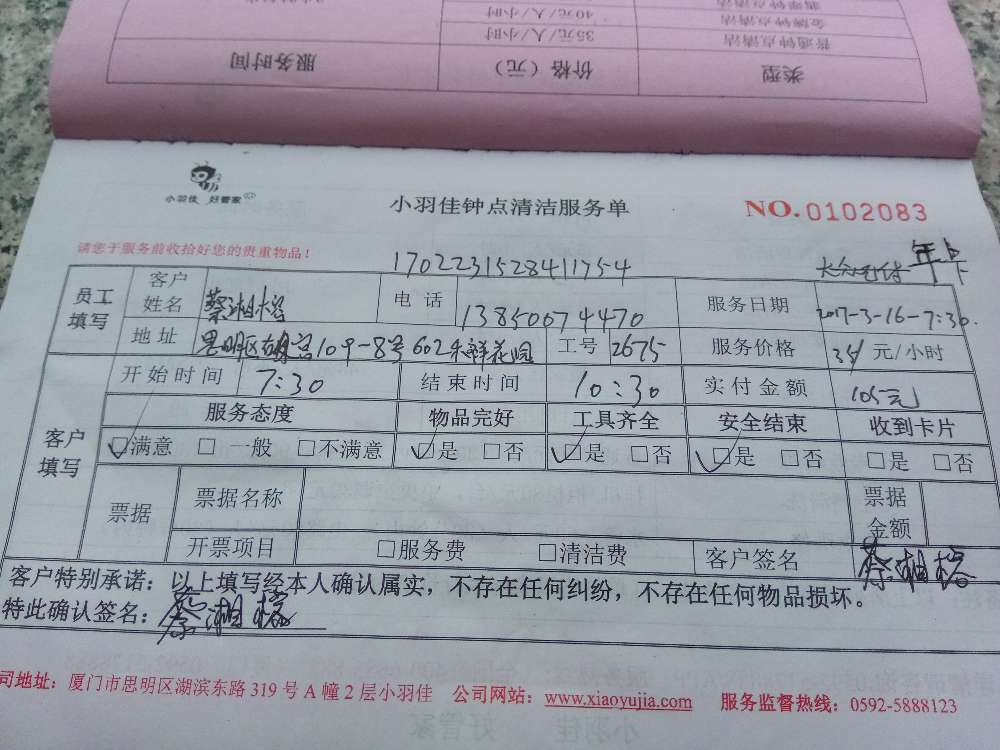 类型 价格（元） 服务时间
普通钟点清洁 35元/人/小时
金牌钟点清洁 40元/人/小时
小羽佳 好管家
小羽佳钟点清洁服务单
NO.0102083
请您于服务前收拾好您的贵重物品！
1702231528411754
年卡
员工填写 客户姓名 电话 13850074470 服务日期 2017-3-16-7:30
地址 思明区 109-8号602 花园 工号 2675 服务价格 35 元/小时
开始时间 7:30 结束时间 10:30 实付金额 105元
客户填写 服务态度 物品完好 工具齐全 安全结束 收到卡片
☑满意 □一般 □不满意 ☑是 □否 ☑是 □否 ☑是 □否 □是 □否
票据 票据名称 票据金额
开票项目 □服务费 □清洁费 客户签名
客户特别承诺：以上填写经本人确认属实，不存在任何纠纷，不存在任何物品损坏。
特此确认签名：
司地址：厦门市思明区湖滨东路319号A幢2层小羽佳 公司网站：www.xiaoyujia.com 服务监督热线：0592-5888123